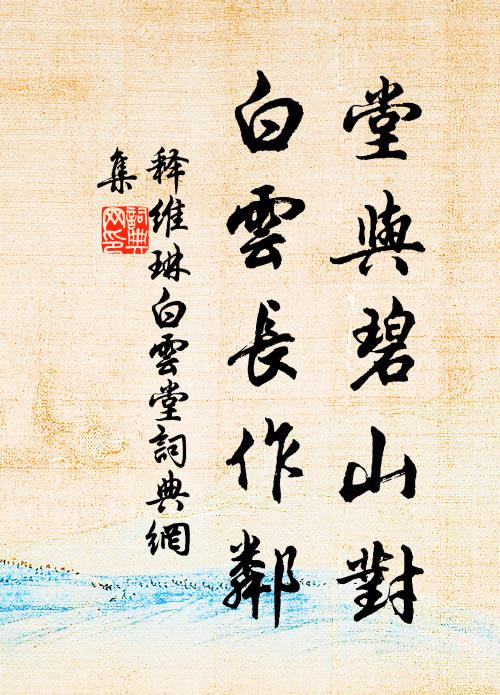 堂與碧山對
白雲長作鄰
释維琳白雲堂詞典網
集
詞典网印